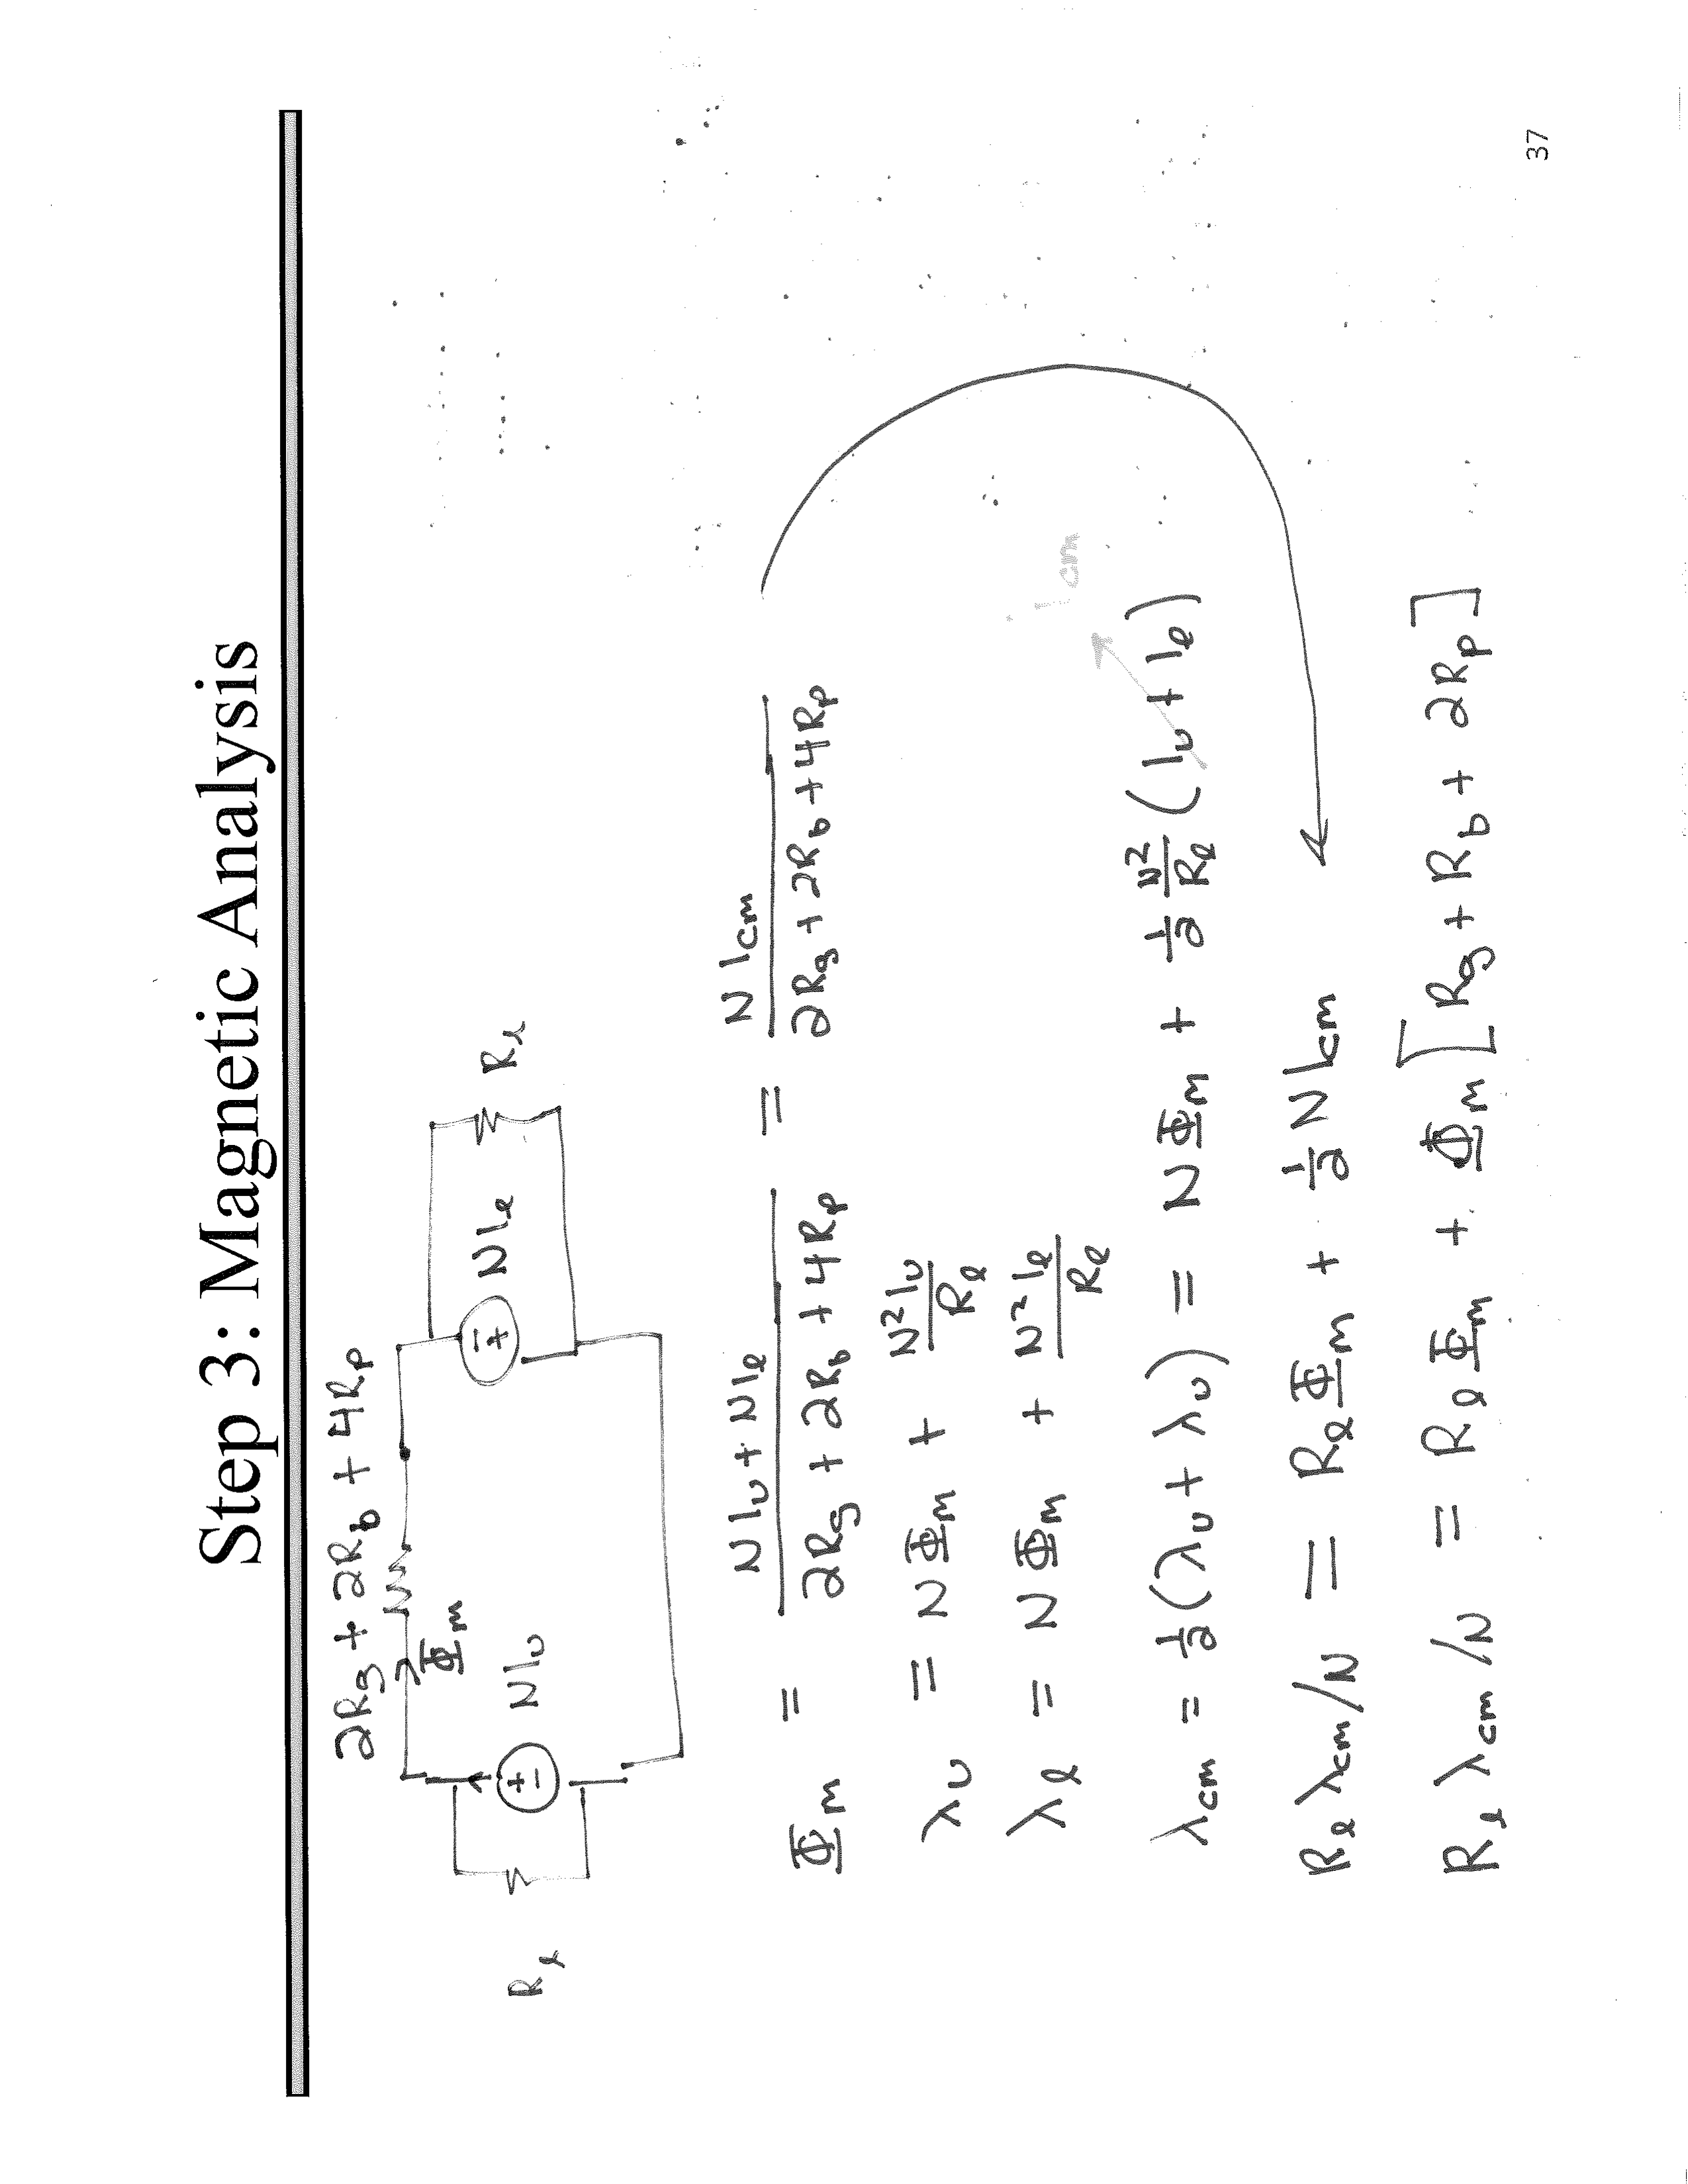 Step 3: Magnetic Analysis
2Rg + 2Rb + 4Rp
Φm
Rℓ
NIu
NIℓ
Rℓ
Φm = (NIu + NIℓ)/(2Rg + 2Rb + 4Rp) = NIcm/(2Rg + 2Rb + 4Rp)
λu = NΦm + N²Iu/Rℓ
λℓ = NΦm + N²Iℓ/Rℓ
icm
λcm = ½(λu + λu) = NΦm + ½ N²/Rℓ (Iu + Iℓ)
Rℓ λcm/N = RℓΦm + ½ NIcm
Rℓ λcm/N = RℓΦm + Φm[Rg + Rb + 2Rp]
37